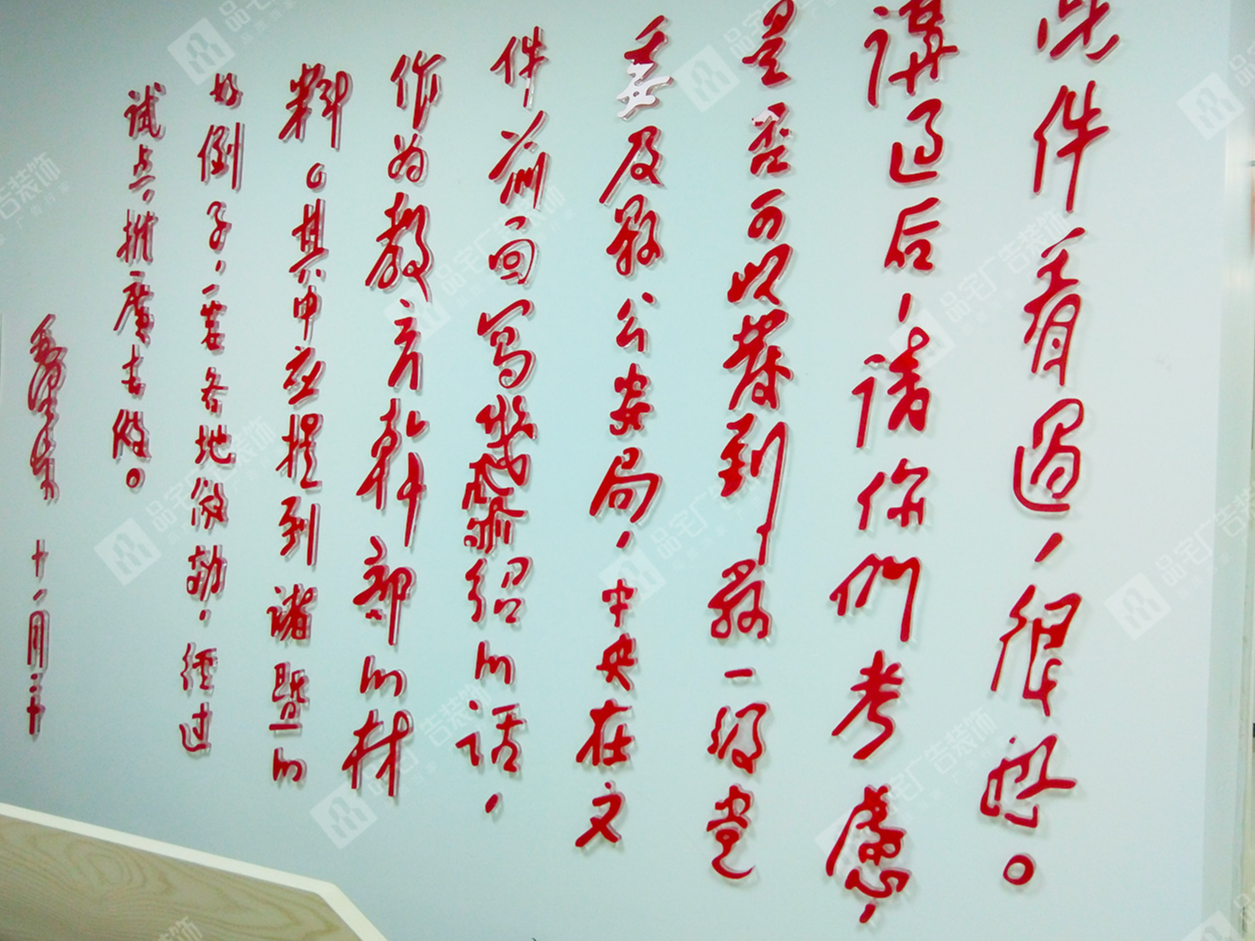 此件看过，很好。
講过后，请你们考慮，
是否可以發到縣一級党
委及縣公安局，中央在文
件前面写幾句介绍的话，
作为教育幹部的材
料。其中应提到諸暨的
好例子，要各地倣効，经过
试点，推廣去做。
毛澤東 十一月二十
品宅广告装饰